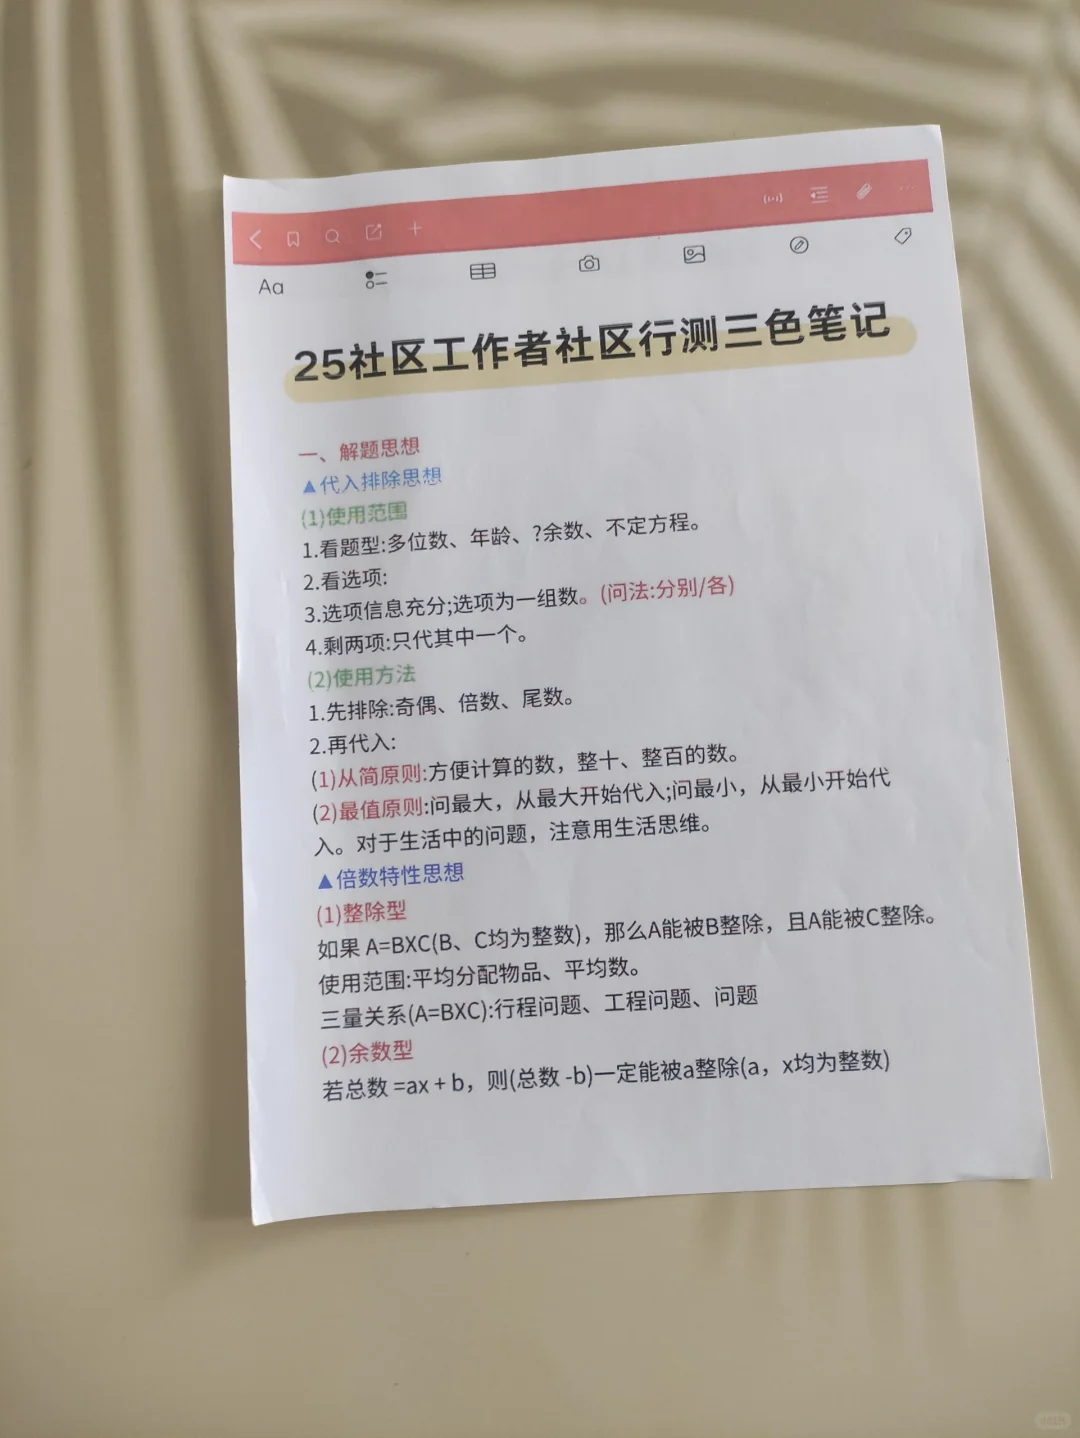 Aa
25社区工作者社区行测三色笔记
一、解题思想
▲代入排除思想
(1)使用范围
1.看题型:多位数、年龄、?余数、不定方程。
2.看选项:
3.选项信息充分;选项为一组数。(问法:分别/各)
4.剩两项:只代其中一个。
(2)使用方法
1.先排除:奇偶、倍数、尾数。
2.再代入:
(1)从简原则:方便计算的数，整十、整百的数。
(2)最值原则:问最大，从最大开始代入;问最小，从最小开始代
入。对于生活中的问题，注意用生活思维。
▲倍数特性思想
(1)整除型
如果 A=BXC(B、C均为整数)，那么A能被B整除，且A能被C整除。
使用范围:平均分配物品、平均数。
三量关系(A=BXC):行程问题、工程问题、问题
(2)余数型
若总数 =ax + b，则(总数 -b)一定能被a整除(a，x均为整数)
小红书